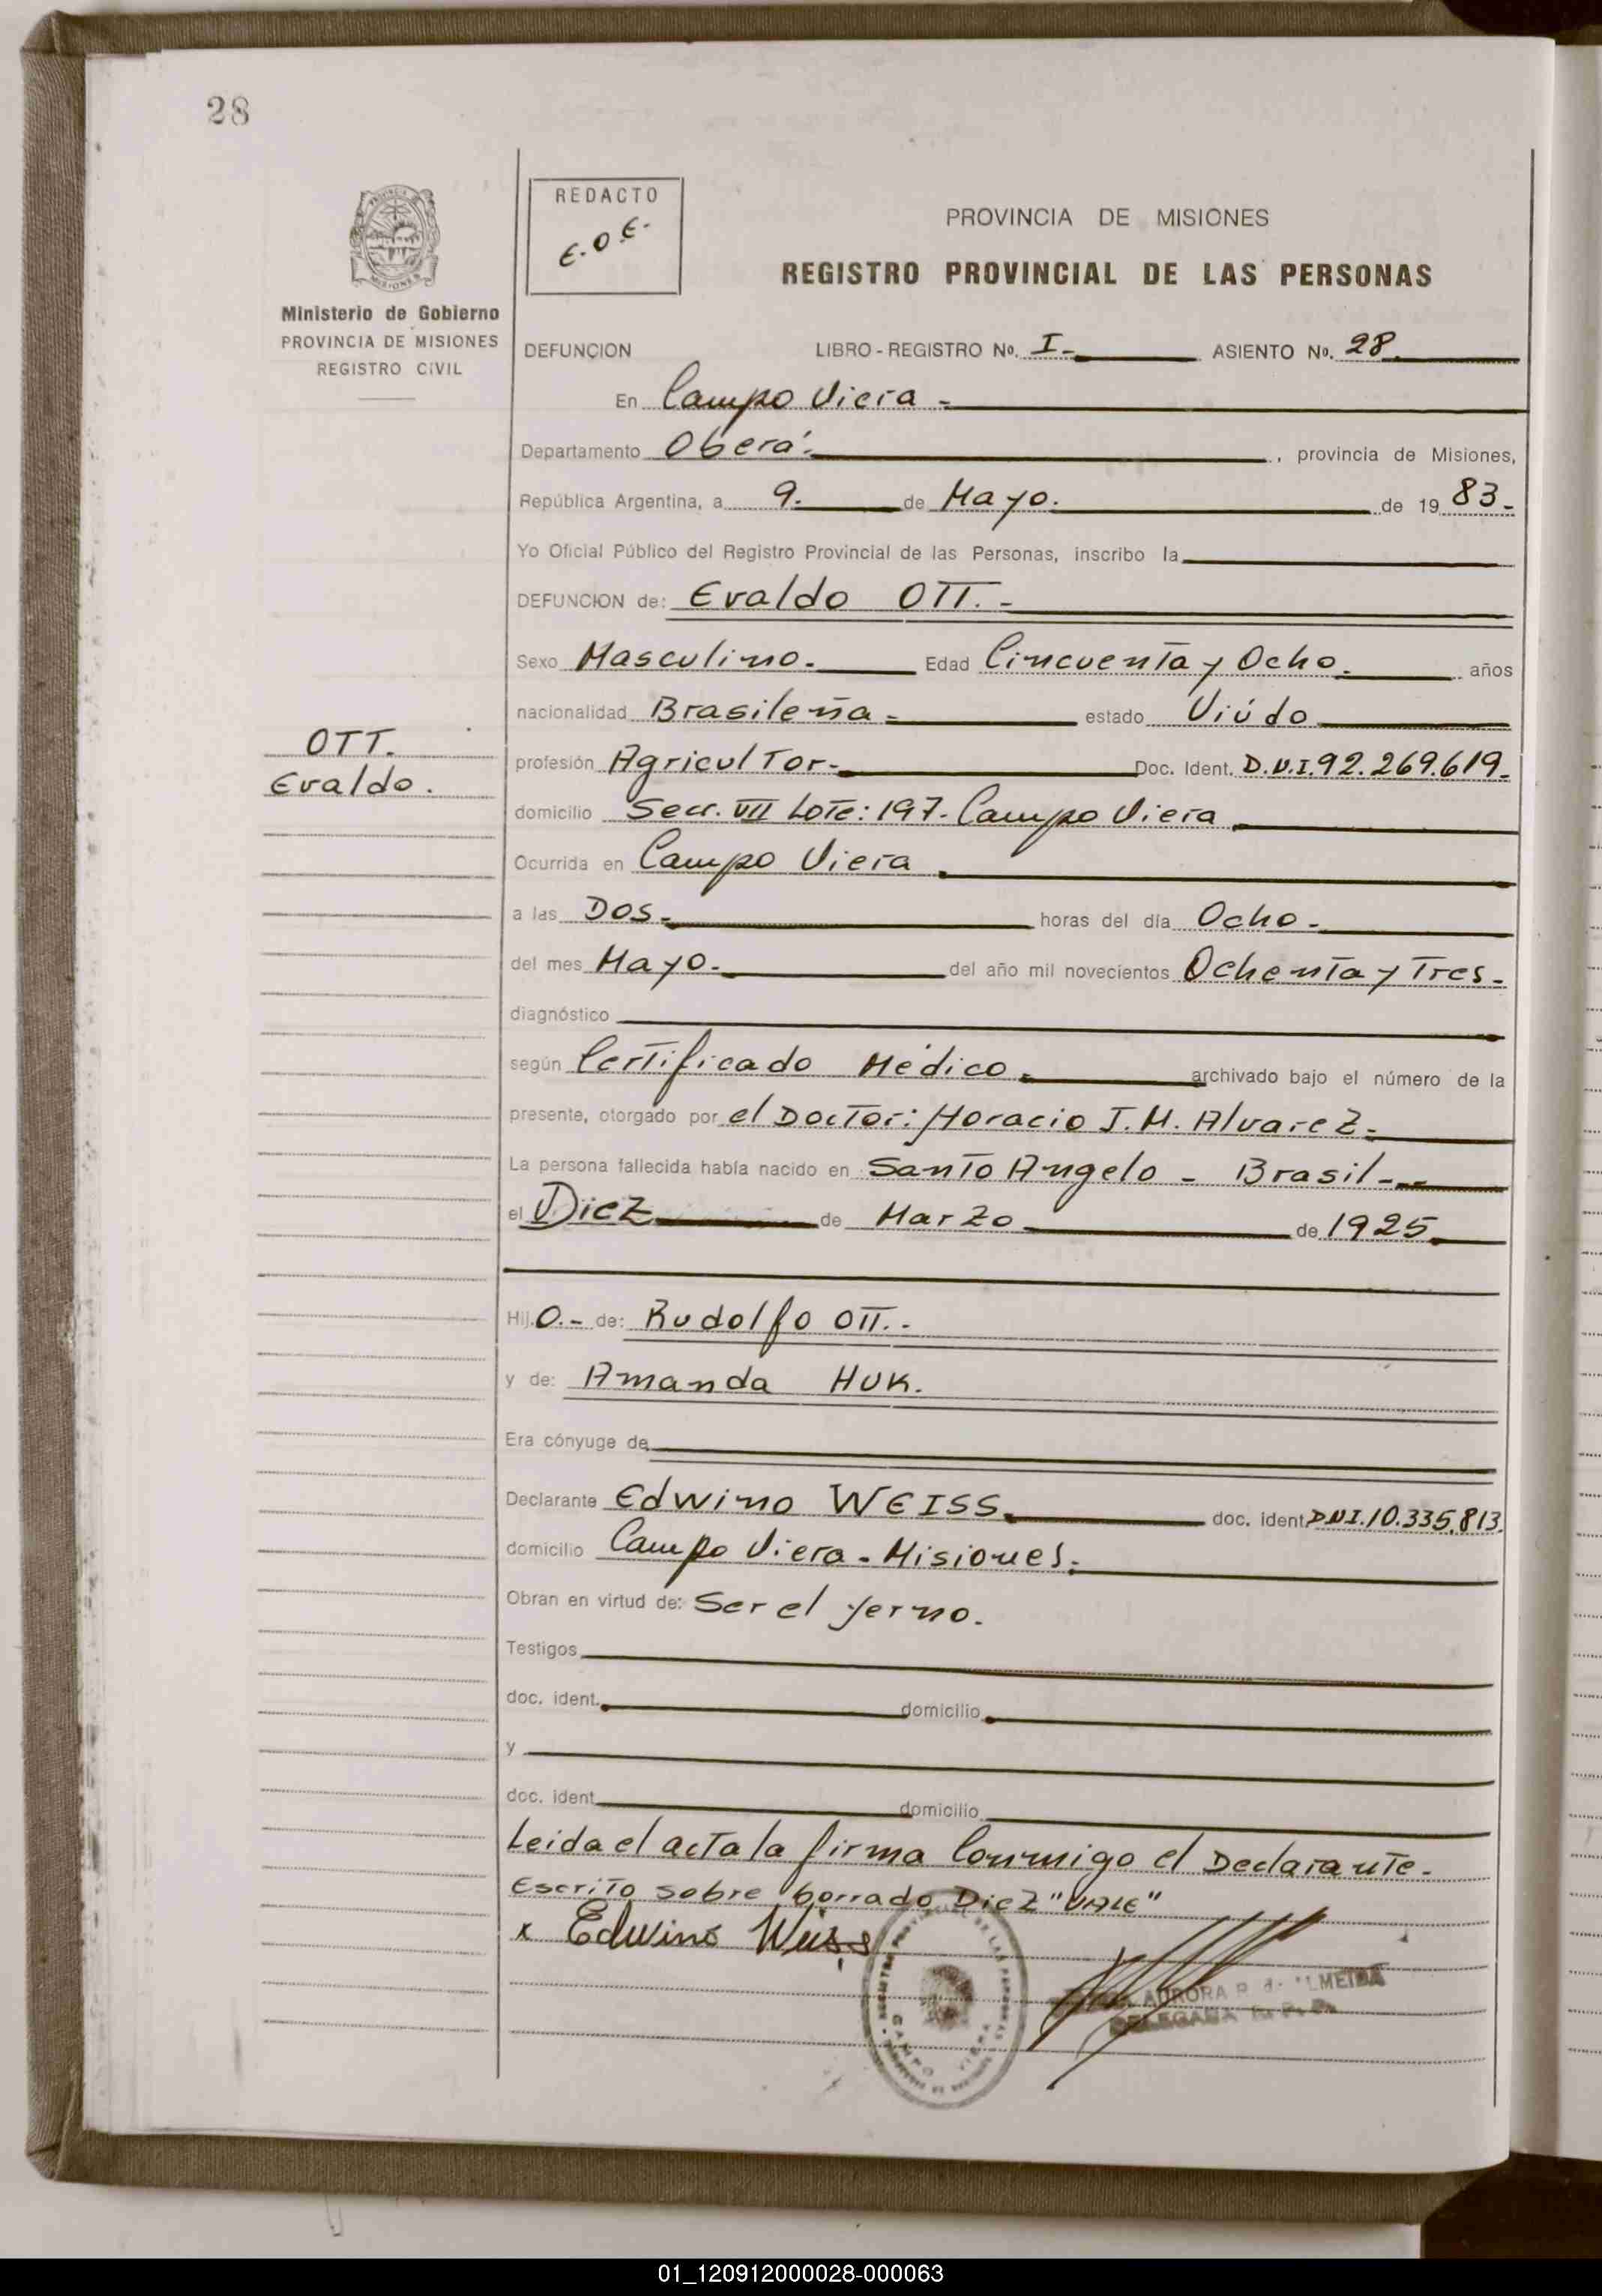 28
REDACTO
E.O.E.
PROVINCIA DE MISIONES
REGISTRO PROVINCIAL DE LAS PERSONAS
Ministerio de Gobierno
PROVINCIA DE MISIONES
REGISTRO CIVIL
DEFUNCION LIBRO - REGISTRO No. I- ASIENTO No. 28.
En Campo Viera -
Departamento Oberá. , provincia de Misiones,
República Argentina, a 9. de Mayo. de 19 83-
Yo Oficial Público del Registro Provincial de las Personas, inscribo la
DEFUNCION de: Evaldo OTT.-
Sexo Masculino. Edad Cincuenta y Ocho. años
nacionalidad Brasileña - estado Viúdo
OTT.
Evaldo.
profesión Agricultor- Doc. Ident. D.N.I.92.269.619-
domicilio Secc. VII Lote: 197- Campo Viera
Ocurrida en Campo Viera
a las Dos- horas del día Ocho-
del mes Mayo- del año mil novecientos Ochenta y Tres-
diagnóstico
según Certificado Médico- archivado bajo el número de la
presente, otorgado por el Doctor: Horacio J.M. Alvarez-
La persona fallecida había nacido en Santo Angelo - Brasil--
el Diez de Marzo de 1925
Hij.o.- de: Rudolfo OTT.-
y de: Amanda HUK.
Era cónyuge de
Declarante Edwino WEISS. doc. ident. D.N.I.10.335.813.
domicilio Campo Viera - Misiones.
Obran en virtud de: Ser el yerno.
Testigos
doc. ident. domicilio
y
doc. ident domicilio
Leida el acta la firma Conmigo el Declarante-
Escrito sobre borrado Diez "VALE"
x Edwino Weiss
CAMPO VIERA
AURORA R. de ALMEIDA
DELEGADA
01_120912000028-000063